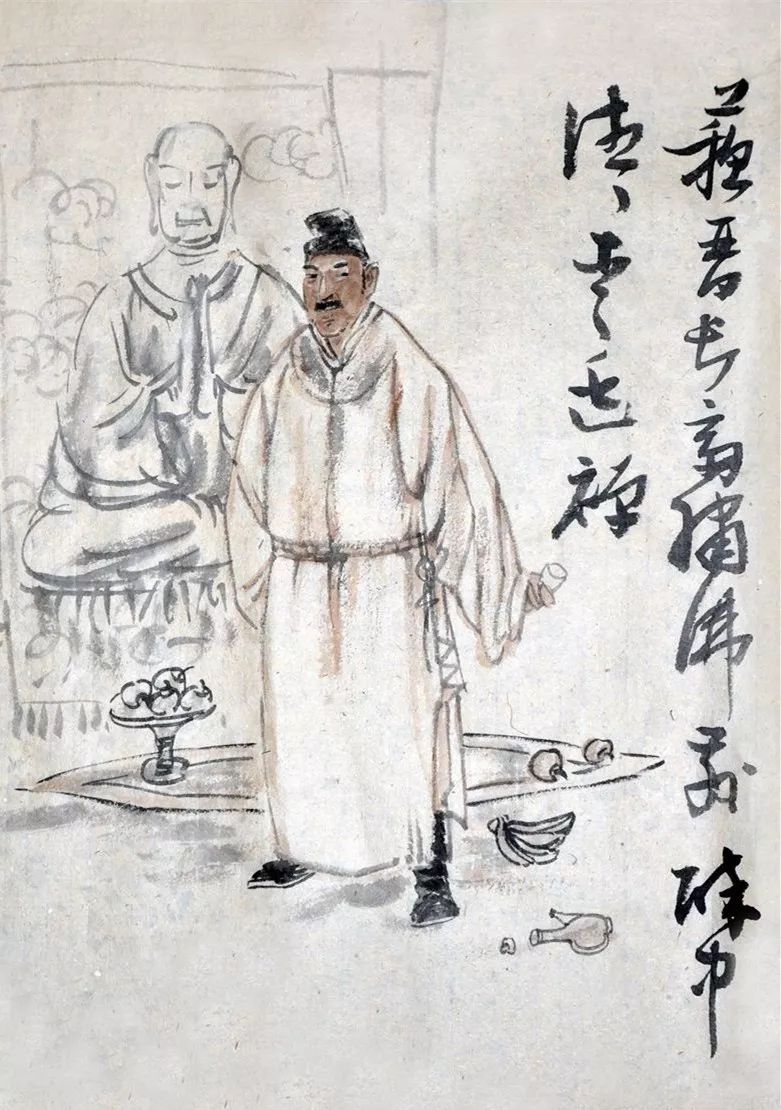 蘇晋長齋繡佛前醉中
往々愛逃禪